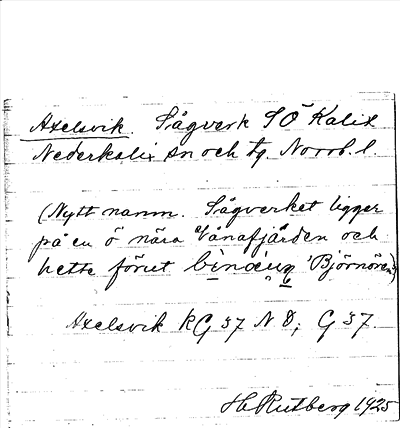 Axelsvik. Sågverk SÖ Kalix
Nederkalix sn och tg. Norrb. l.
(Nytt namn. Sågverket ligger
på en ö nära Vånafjärden och
hette förut 'Björnören')
Axelsvik KG 37 N D; G 37
H. Rutberg 1925